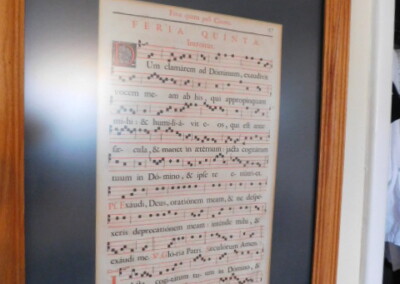 Feria quinta post Cineres.
FERIA QUINTA
Introitus.
Cum clamarem ad Dominum, exaudivit
vocem me- am ab his, qui appropinquant
mi-hi; & humili-á- vit e- os, qui est ante
sæ- cula, & manet in ætérnum: jacta cogitatum
tuum in Dó-mino, & ipse te e- nútriet.
Exáudi, Deus, oratiónem meam, & ne despé-
xeris deprecatiónem meam: inténde mihi, &
exáudi me. Glória Patri. Sæculórum Amen.
cogitátum tu- um in Dómino, &